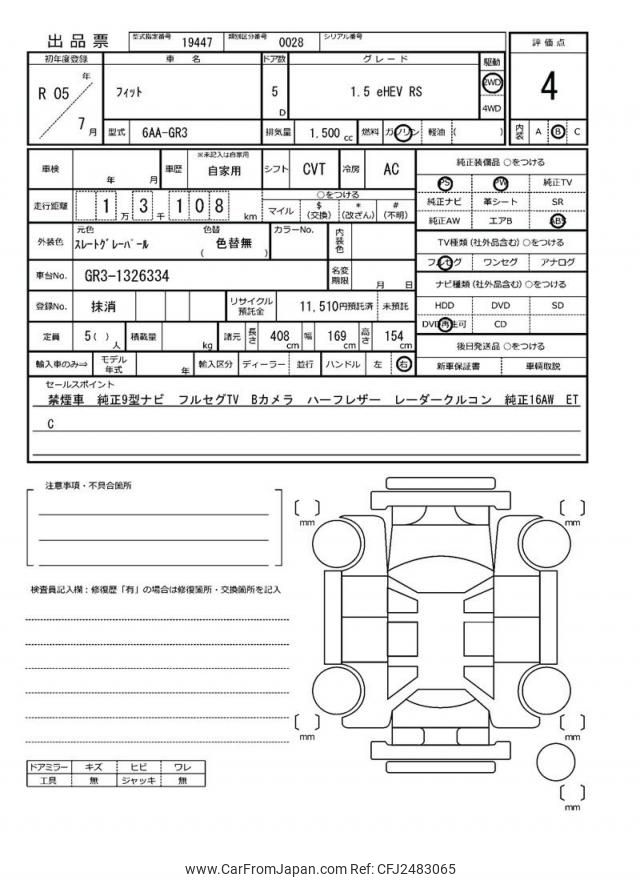 出品票 型式指定番号 19447 類別区分番号 0028 シリアル番号
評価点
4
内装 A B C
初年度登録 車名 ドア数 グレード 駆動
R 05 年 7 月 フィット 5 D 1.5 eHEV RS 2WD 4WD
型式 6AA-GR3 排気量 1,500 cc 燃料 ガソリン 軽油 ( )
車検 年 月 車歴 ※未記入は自家用 自家用 シフト CVT 冷房 AC
走行距離 1 万 3 千 1 0 8 km ○をつける マイル $ (交換) * (改ざん) # (不明)
外装色 元色 スレートグレーパール 色替 ( 色替無 ) カラーNo. 内装色
車台No. GR3-1326334 名変期限 月 日
登録No. 抹消 リサイクル預託金 11,510円預託済 未預託
定員 5( ) 人 積載量 kg 諸元 長さ 408 cm 幅 169 cm 高さ 154 cm
輸入車のみ⇒ モデル年式 年 輸入区分 ディーラー 並行 ハンドル 左 右
純正装備品 ○をつける
PS PW 純正TV
純正ナビ 革シート SR
純正AW エアB ABS
TV種類 (社外品含む) ○をつける
フルセグ ワンセグ アナログ
ナビ種類 (社外品含む) ○をつける
HDD DVD SD
DVD再生可 CD
後日発送品 ○をつける
新車保証書 車輌取説
セールスポイント
禁煙車 純正9型ナビ フルセグTV Bカメラ ハーフレザー レーダークルコン 純正16AW ET
C
注意事項・不具合箇所
検査員記入欄：修復歴「有」の場合は修復箇所・交換箇所を記入
mm
mm
mm
mm
mm
ドアミラー キズ ヒビ ワレ
工具 無 ジャッキ 無
www.CarFromJapan.com Ref: CFJ2483065